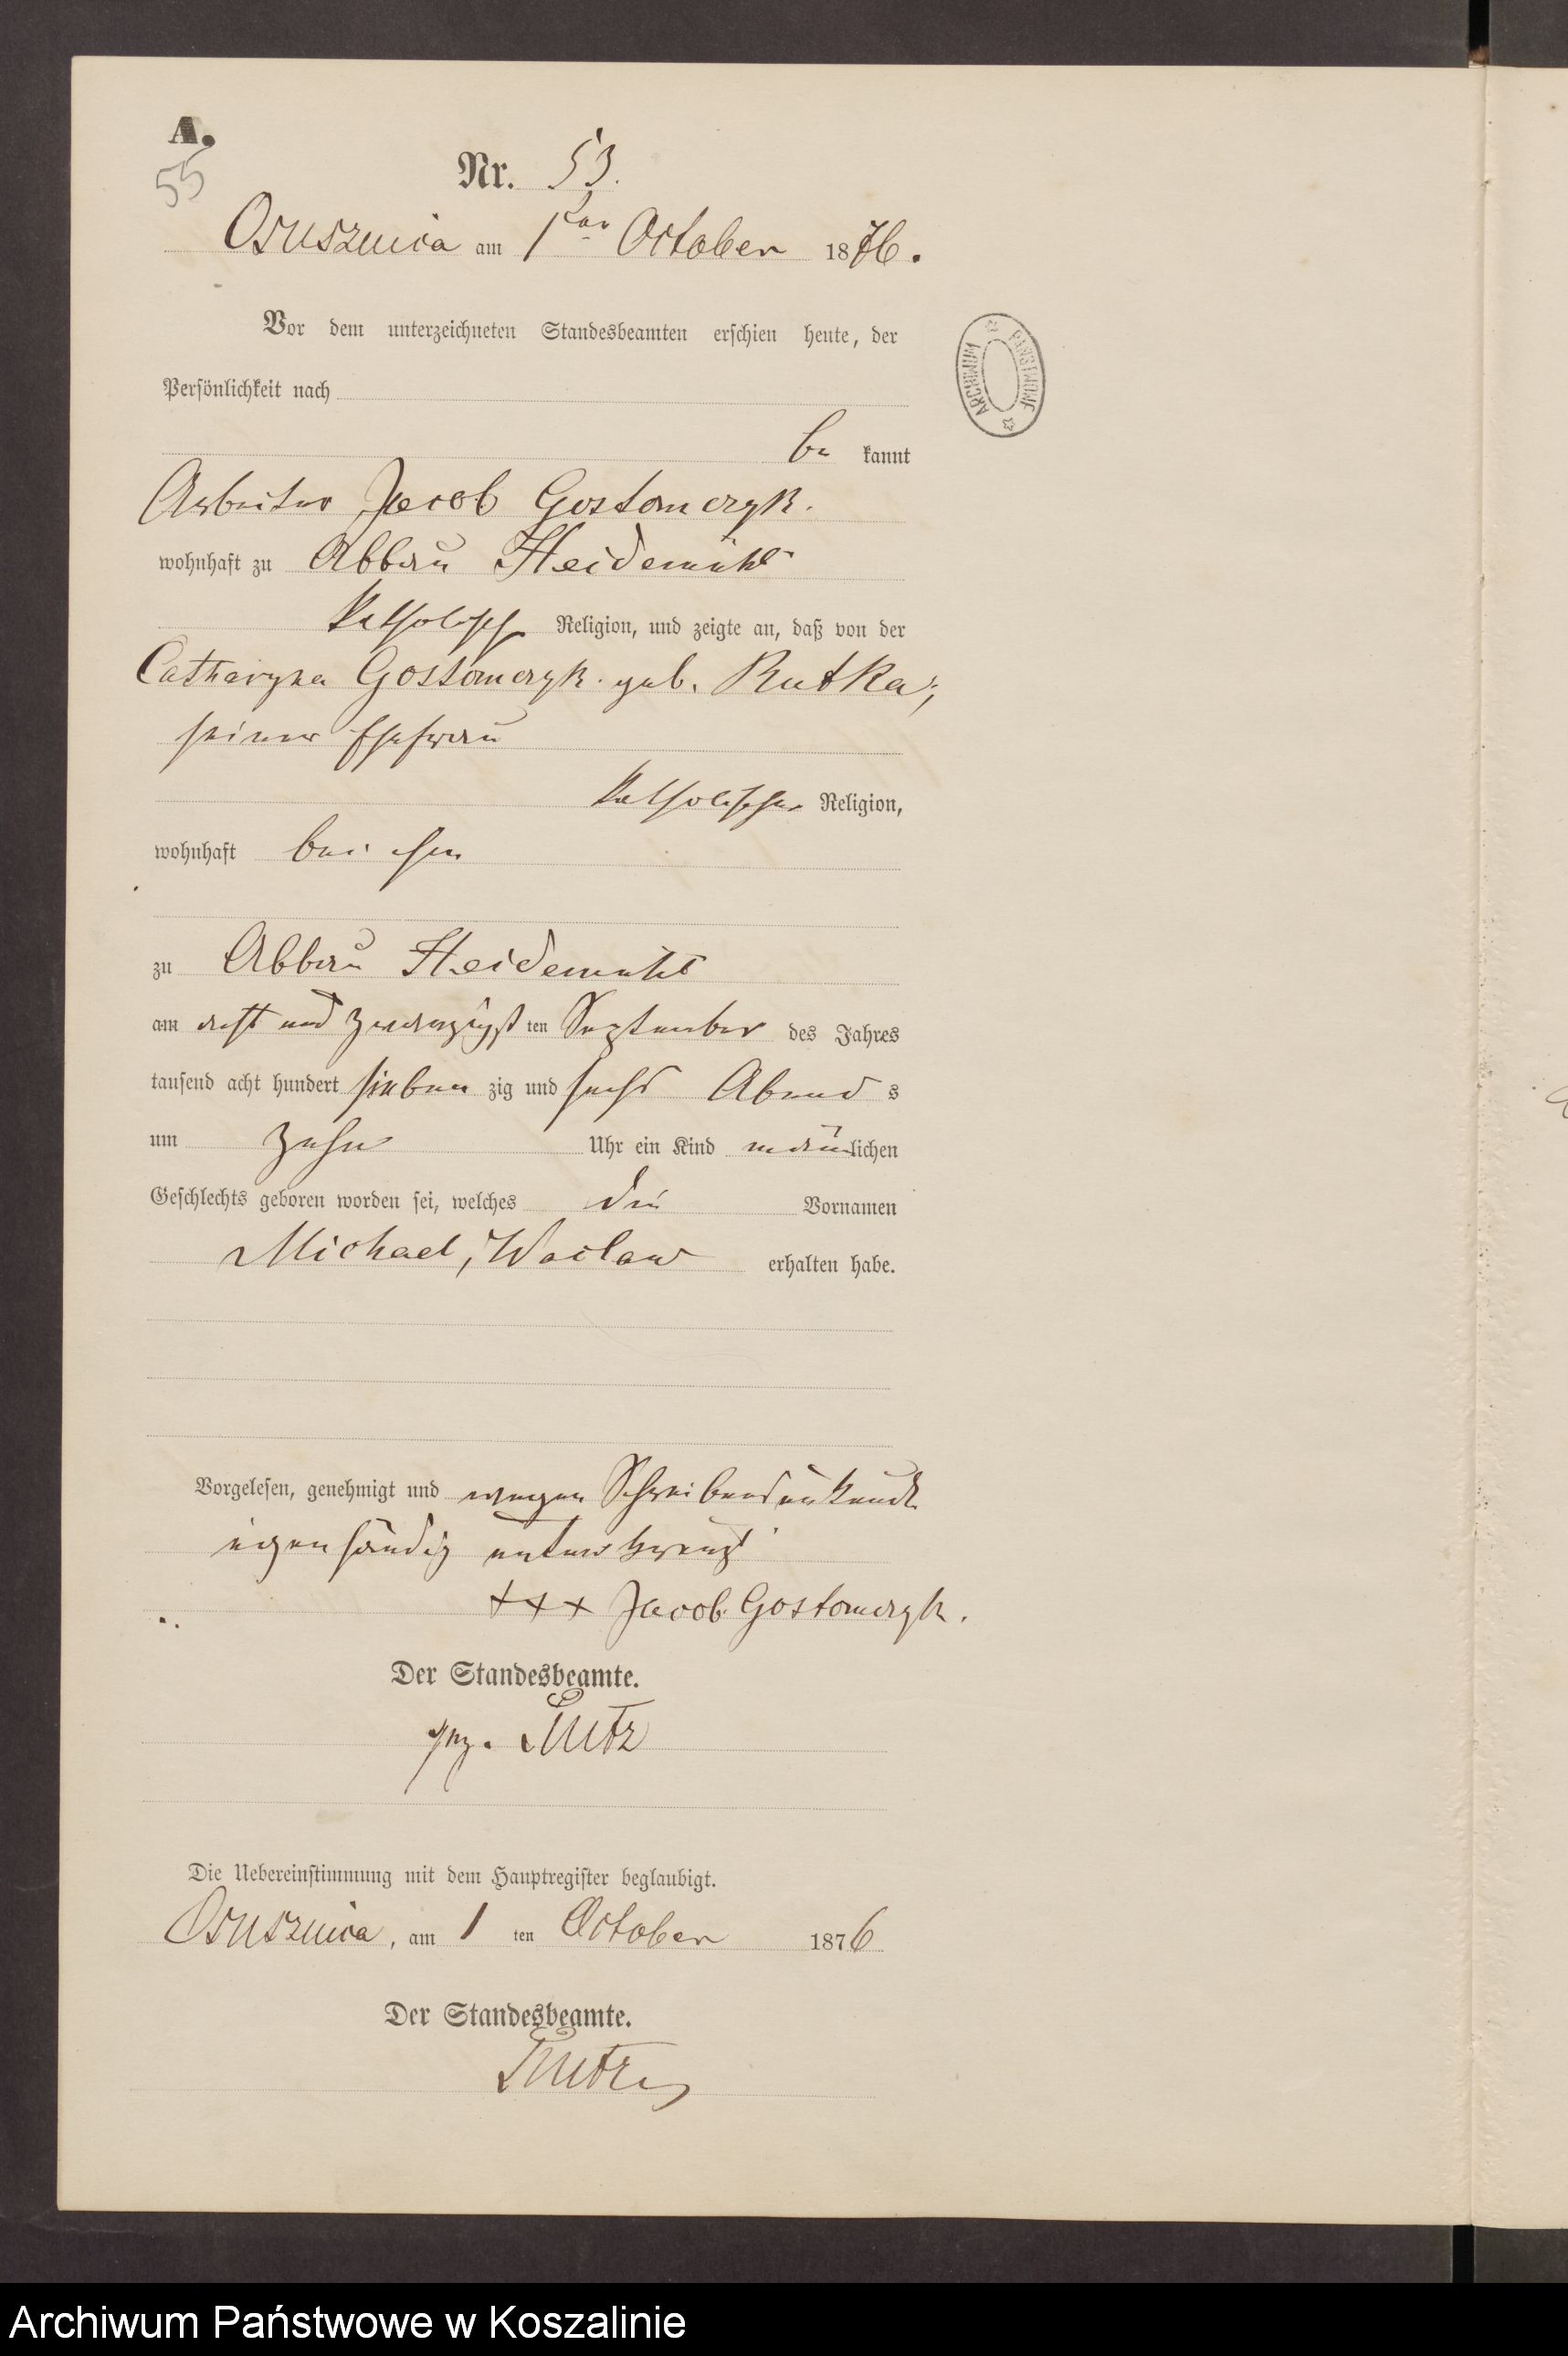 A.
55
Nr. 53.
Osuszniča am 1ter October 1876.
Vor dem unterzeichneten Standesbeamten erschien heute, der
Persönlichkeit nach
be kannt
Arbeiter Jacob Gostomczyk.
wohnhaft zu Abbau Heidemühl
katholisch Religion, und zeigte an, daß von der
Catharyna Gostomczyk. geb. Rutka,
seiner Ehefrau
katholischer Religion,
wohnhaft bei ihm
zu Abbau Heidemühl
am acht und zwanzigst ten September des Jahres
tausend acht hundert sieben zig und sechs Abend s
um zehn Uhr ein Kind män̄lichen
Geschlechts geboren worden sei, welches die Vornamen
Michael, Waclaw erhalten habe.
Vorgelesen, genehmigt und wegen Schreibensunkunde
eigenhändig unterkreuzt
+++ Jacob Gostomczyk.
Der Standesbeamte.
gez. Lutz
Die Uebereinstimmung mit dem Hauptregister beglaubigt.
Osusznica, am 1 ten October 1876
Der Standesbeamte.
Lutz
ARCHIWUM PAŃSTWOWE
Archiwum Państwowe w Koszalinie